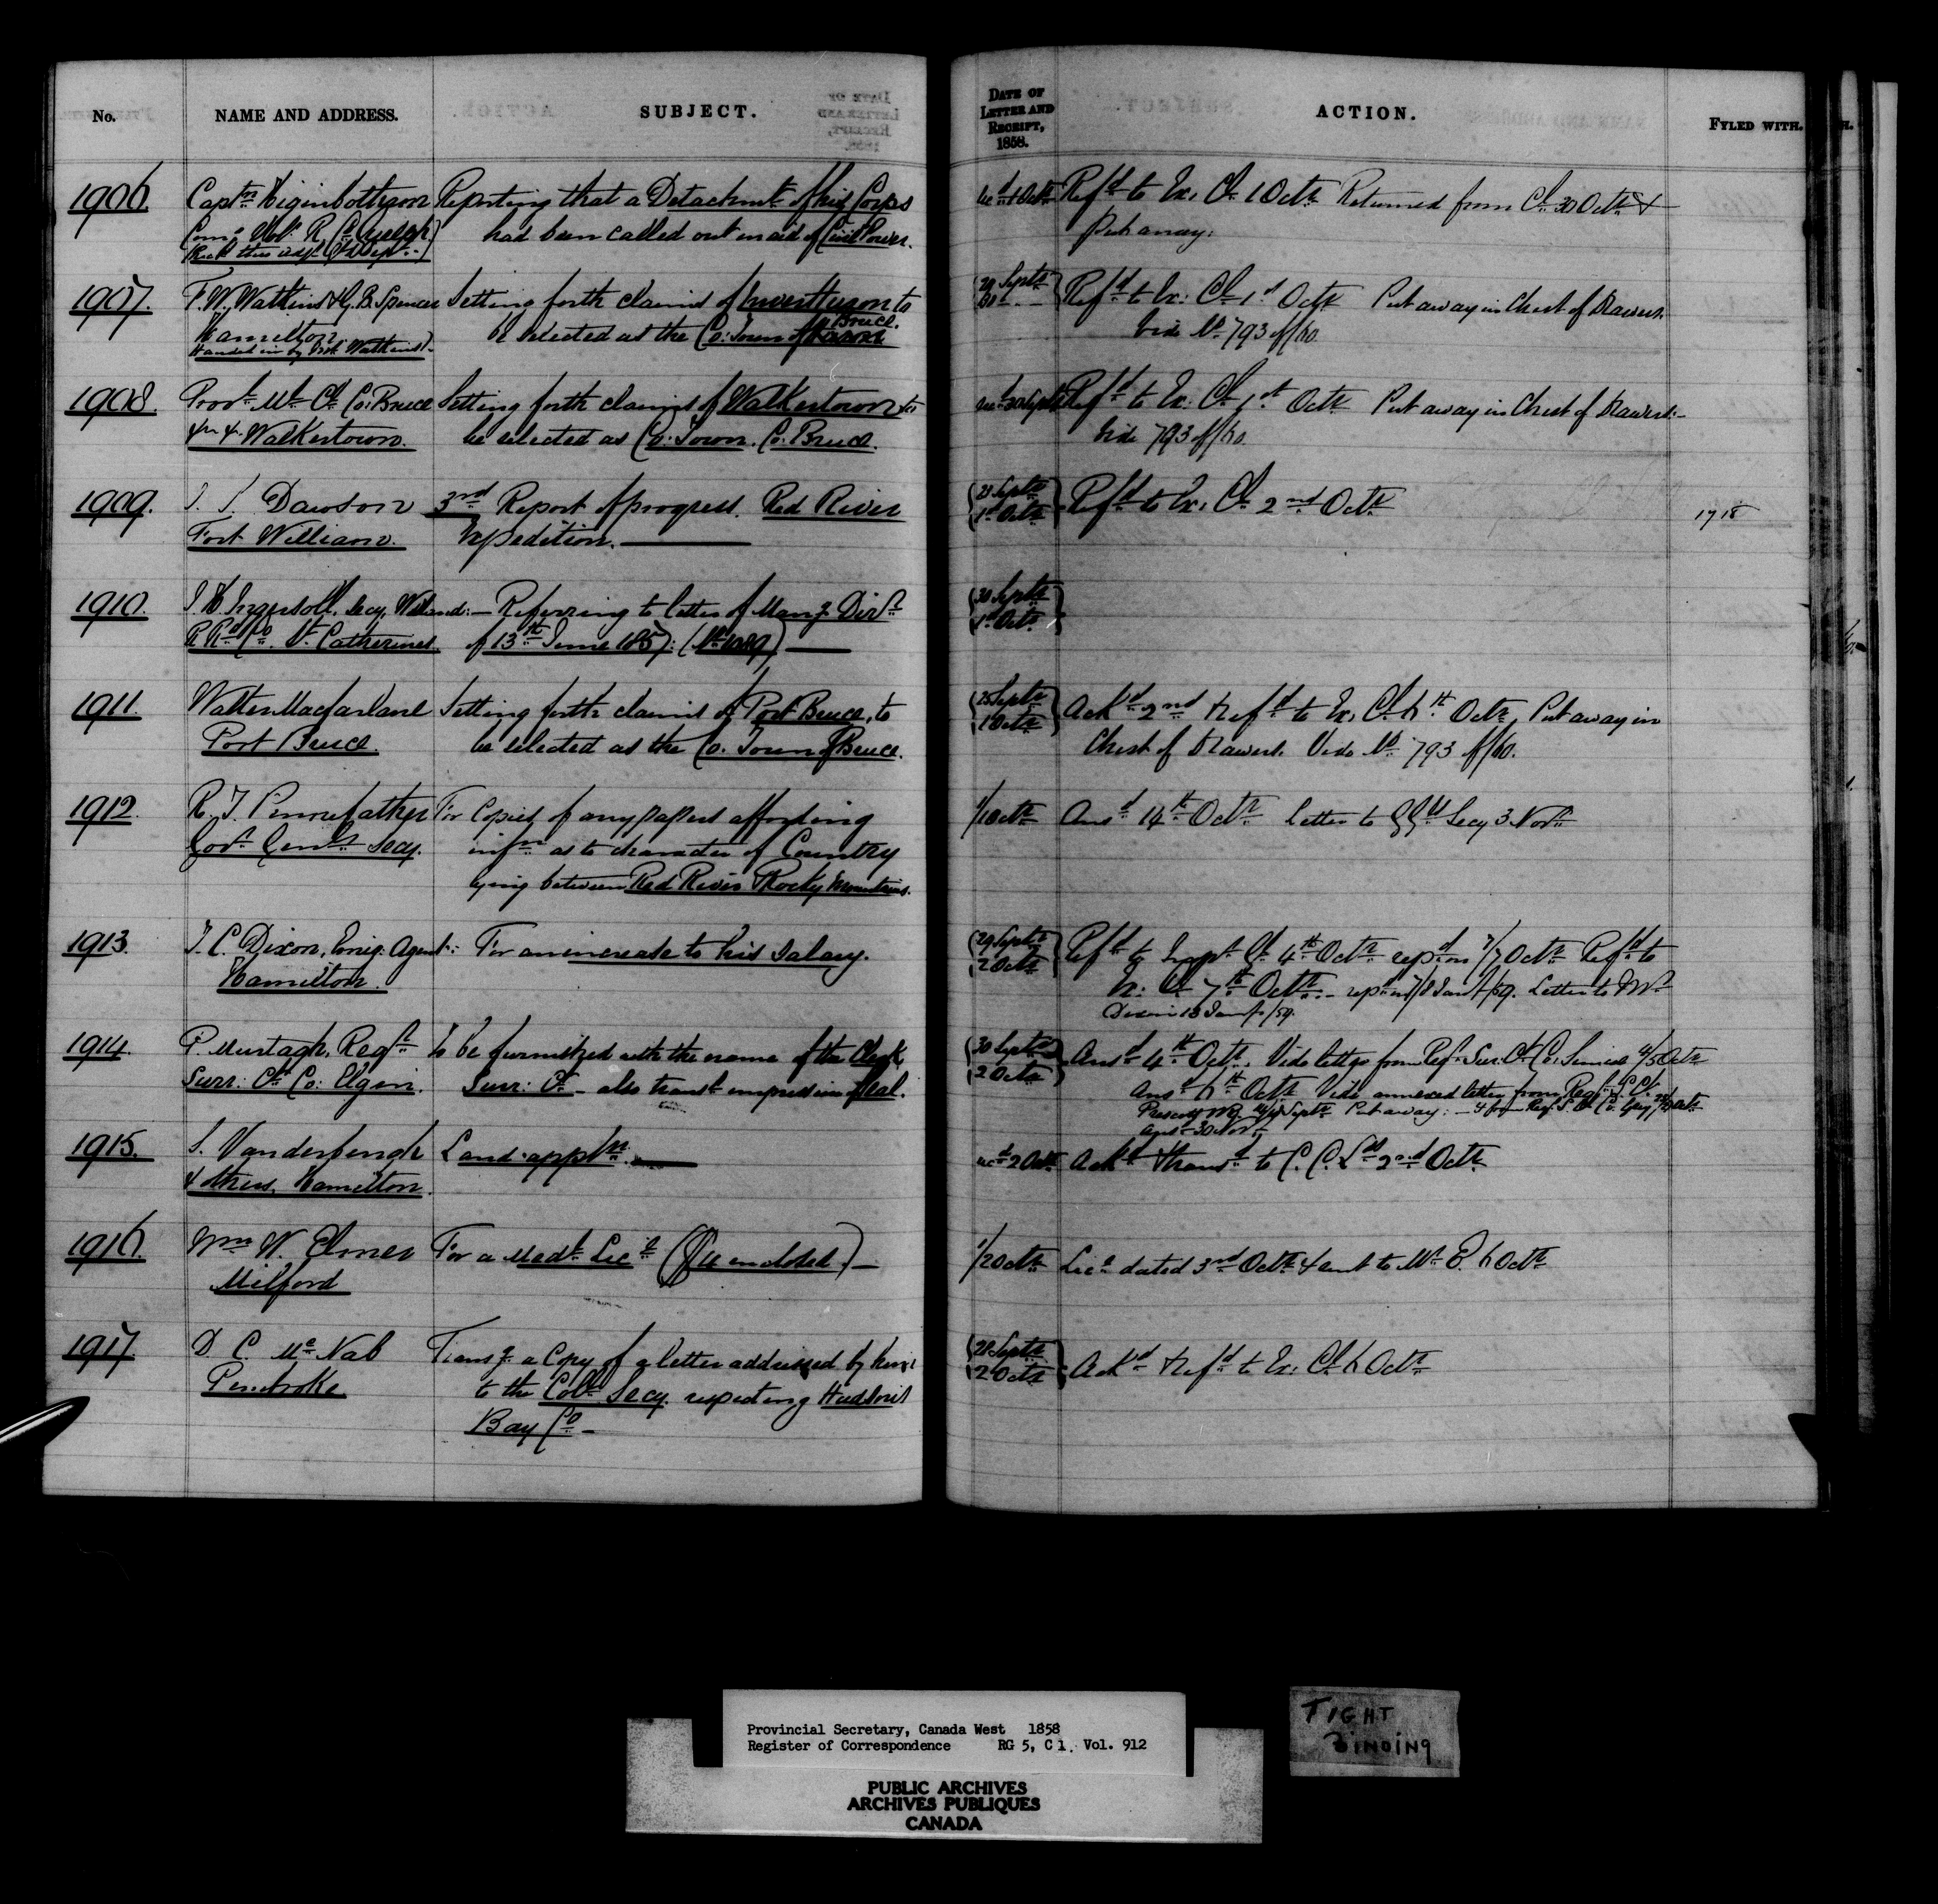 No. NAME AND ADDRESS. SUBJECT.
1906. Captn Higinbotham Reporting that a Detachmt of his Corps
had been called out in aid of Civil Power.
1907. F. W. Watkins & G. B. Spencer Setting forth claims of Invertyson to
Hamilton. be selected as the Co: Town of Bruce.
Handed in by Watkins
1908. Provl Ml Cl Co: Bruce Setting forth claims of Walkertown to
Walkertown. be selected as Co: Town. Co: Bruce.
1909. Dawson 3rd Report of progress. Red River
Fort William. Expedition.
1910. Ingersoll, Secy. Welland:— Referring to letter of Mang Dirr
R Rd Co. St Catherines. of 13th June 185
1911. Walter Macfarlane Setting forth claims of Port Bruce, to
Port Bruce. be selected as the Co. Town of Bruce.
1912. R. T. Pennefather For Copies of any papers affording
Govr Genls Secy. infn as to character of Country
lying between Red River & Rocky Mountains.
1913. Dixon, Emig: Agent:- For an increase to his Salary.
Hamilton.
1914. P. Murtagh, Regr to be furnished with the name of the Clerk
Surr: Ct Co: Elgin. Surr: Ct – also transt impression of Seal.
1915. S. Vanderburgh Land appln.
& others, Hamilton.
1916. Wm W. Elmer For a Medl Lice ($4 enclosed) —
Milford
1917. D. C. McNab Transg a Copy of a letter addressed by him
Pembroke to the Coll Secy. respecting Hudson's
Bay Co –
DATE OF
LETTER AND
RECEIPT,
1858.
ACTION. FYLED WITH.
1 Octr Refd to Ex: Cl 1 Octr Returned from Cl 30 Octr &
Put away.
29 Septr Refd to Ex: Cl 1st Octr Put away in Chest of Drawers.
30 vide No 793 of/60
30 Septr Refd to Ex: Cl 1st Octr Put away in Chest of Drawers:-
Vide 793 of/60
1st Octr Refd to Ex: Cl 2nd Octr 1718
30 Septr
1st Octr
25 Septr Ackd 2nd & refd to Ex: Cl 6th Octr, Put away in
1 Octr Chest of Drawers. Vide No 793 of/60.
1/1 Octr Ansd 14th Octr Letter to GGls Secy 3 Novr
29 Septr Refd to Inspr Gl 4th Octr repd on 7/7 Octr Refd to
2 Octr Ex: Cl 7th Octr. – Letter to Mr
Dixon 13 /59.
30 Septr Ansd 4th Octr. Vide letter from Regr Surr: Ct Co: Simcoe 4/5 Octr
2 Octr Ansd 6th Octr Vide annexed letter from Regr S. Ct
Put away:
Ansd 30 Novr
2 Octr Ackd & transd to C. C. Lds 2nd Octr
1/2 Octr Lice dated 3rd Octr & sent to Mr E. 6 Octr
28 Septr
2 Octr Ackd & refd to Ex: Cl 6 Octr
Provincial Secretary, Canada West 1858
Register of Correspondence RG 5, C 1. Vol. 912
PUBLIC ARCHIVES
ARCHIVES PUBLIQUES
CANADA
TIGHT
BINDING